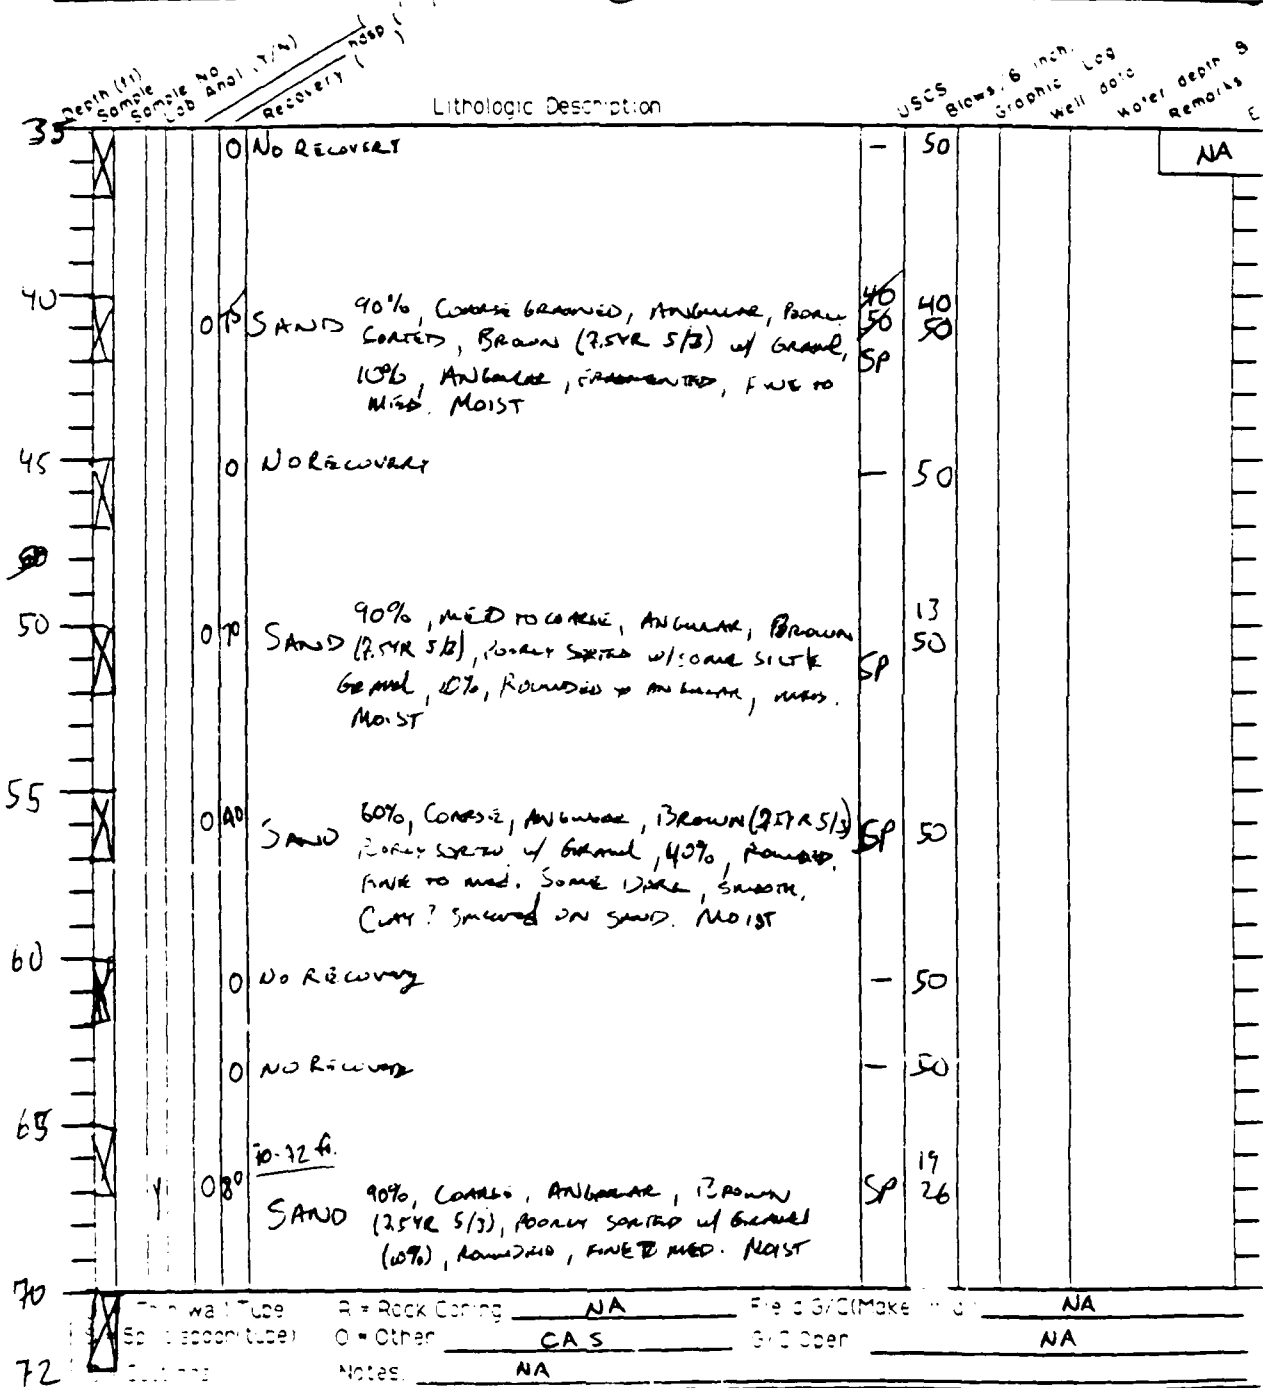 Depth (ft)
Sample
Sample No
Lab Anal. (Y/N)
Recovery (
Lithologic Description
USCS
Blows/6 inch.
Graphic Log
Well data
Water depth &
Remarks
E
35
0 NO RECOVERY - 50
NA
40
0 75 SAND 90%, COARSE GRAINED, ANGULAR, POORLY 40 40
SORTED, BROWN (7.5YR 5/3) w/ GRAVEL, 50 50
10%, ANGULAR, FRAGMENTED, FINE TO SP
MED. MOIST
45
0 NO RECOVERY — 50
50
50
0 70 SAND 90%, MED TO COARSE, ANGULAR, BROWN 13
(7.5YR 5/3), POORLY SORTED w/ SOME SILT & 50
GRAVEL, 10%, ROUNDED TO ANGULAR, MED. SP
MOIST
55
0 40 SAND 60%, COARSE, ANGULAR, BROWN (7.5YR 5/3) SP 50
POORLY SORTED w/ GRAVEL, 40%, ROUNDED,
FINE TO MED. SOME DARK, SMOOTH,
CLAY? SMEARED ON SAND. MOIST
60
0 NO RECOVERY - 50
0 NO RECOVERY - 50
65
70-72 ft.
Y 0 80 SAND 90%, COARSE, ANGULAR, BROWN SP 19
(7.5YR 5/3), POORLY SORTED w/ GRAVEL 26
(10%), ROUNDED, FINE TO MED. MOIST
70
Thin Wall Tube R = Rock Coring NA Field G/C (Make NA
Split spoon (tube) O = Other CAS G/C Oper NA
72
Cuttings Notes: NA